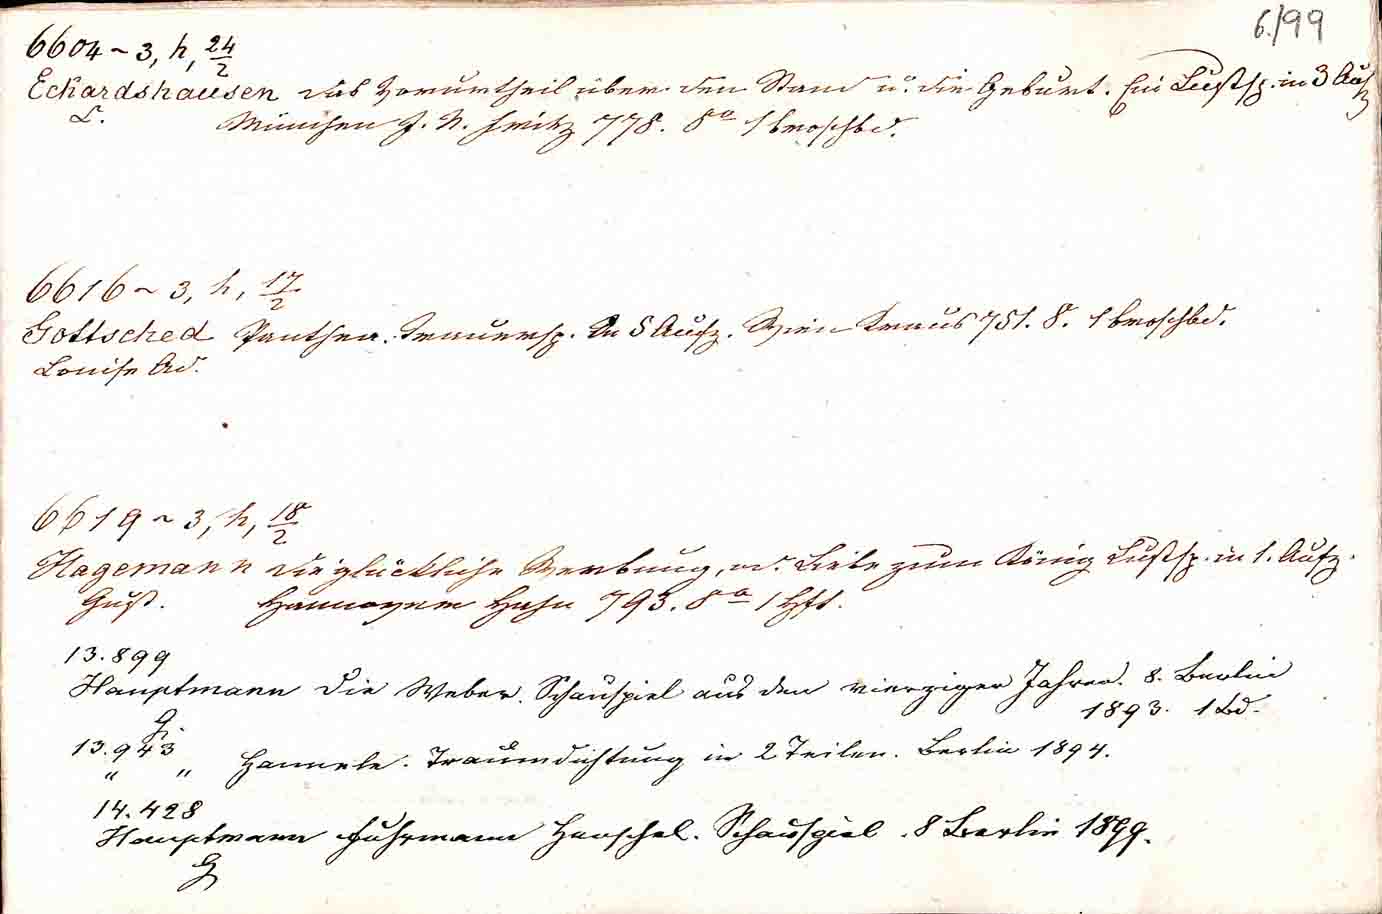 6./99
6604 ~ 3, h, 24/2
Eckardshausen das Vorurtheil über den Stand u. die Geburt. Ein Lustsp. in 3 Aufz
C. München J. N. Fritz 778. 8° 1 broschbd.
6616 ~ 3, h, 17/2
Gottsched Panthea. Trauersp. In 5 Aufz. Wien Kraus 751. 8. 1 broschbd.
Louise Ad.
6619 ~ 3, h, 18/2
Hagemann die glückliche Werbung, od. Liebe zum König Lustsp. in 1. Aufz.
Gust. Hannover Hahn 793. 8° 1 Hft.
13.899
Hauptmann Die Weber. Schauspiel aus den vierziger Jahren. 8. Berlin
G. 1893. 1 Bd.
13.943
" " Hannele. Traumdichtung in 2 Teilen. Berlin 1894.
14.428
Hauptmann Fuhrmann Henschel. Schauspiel. 8 Berlin 1899.
G